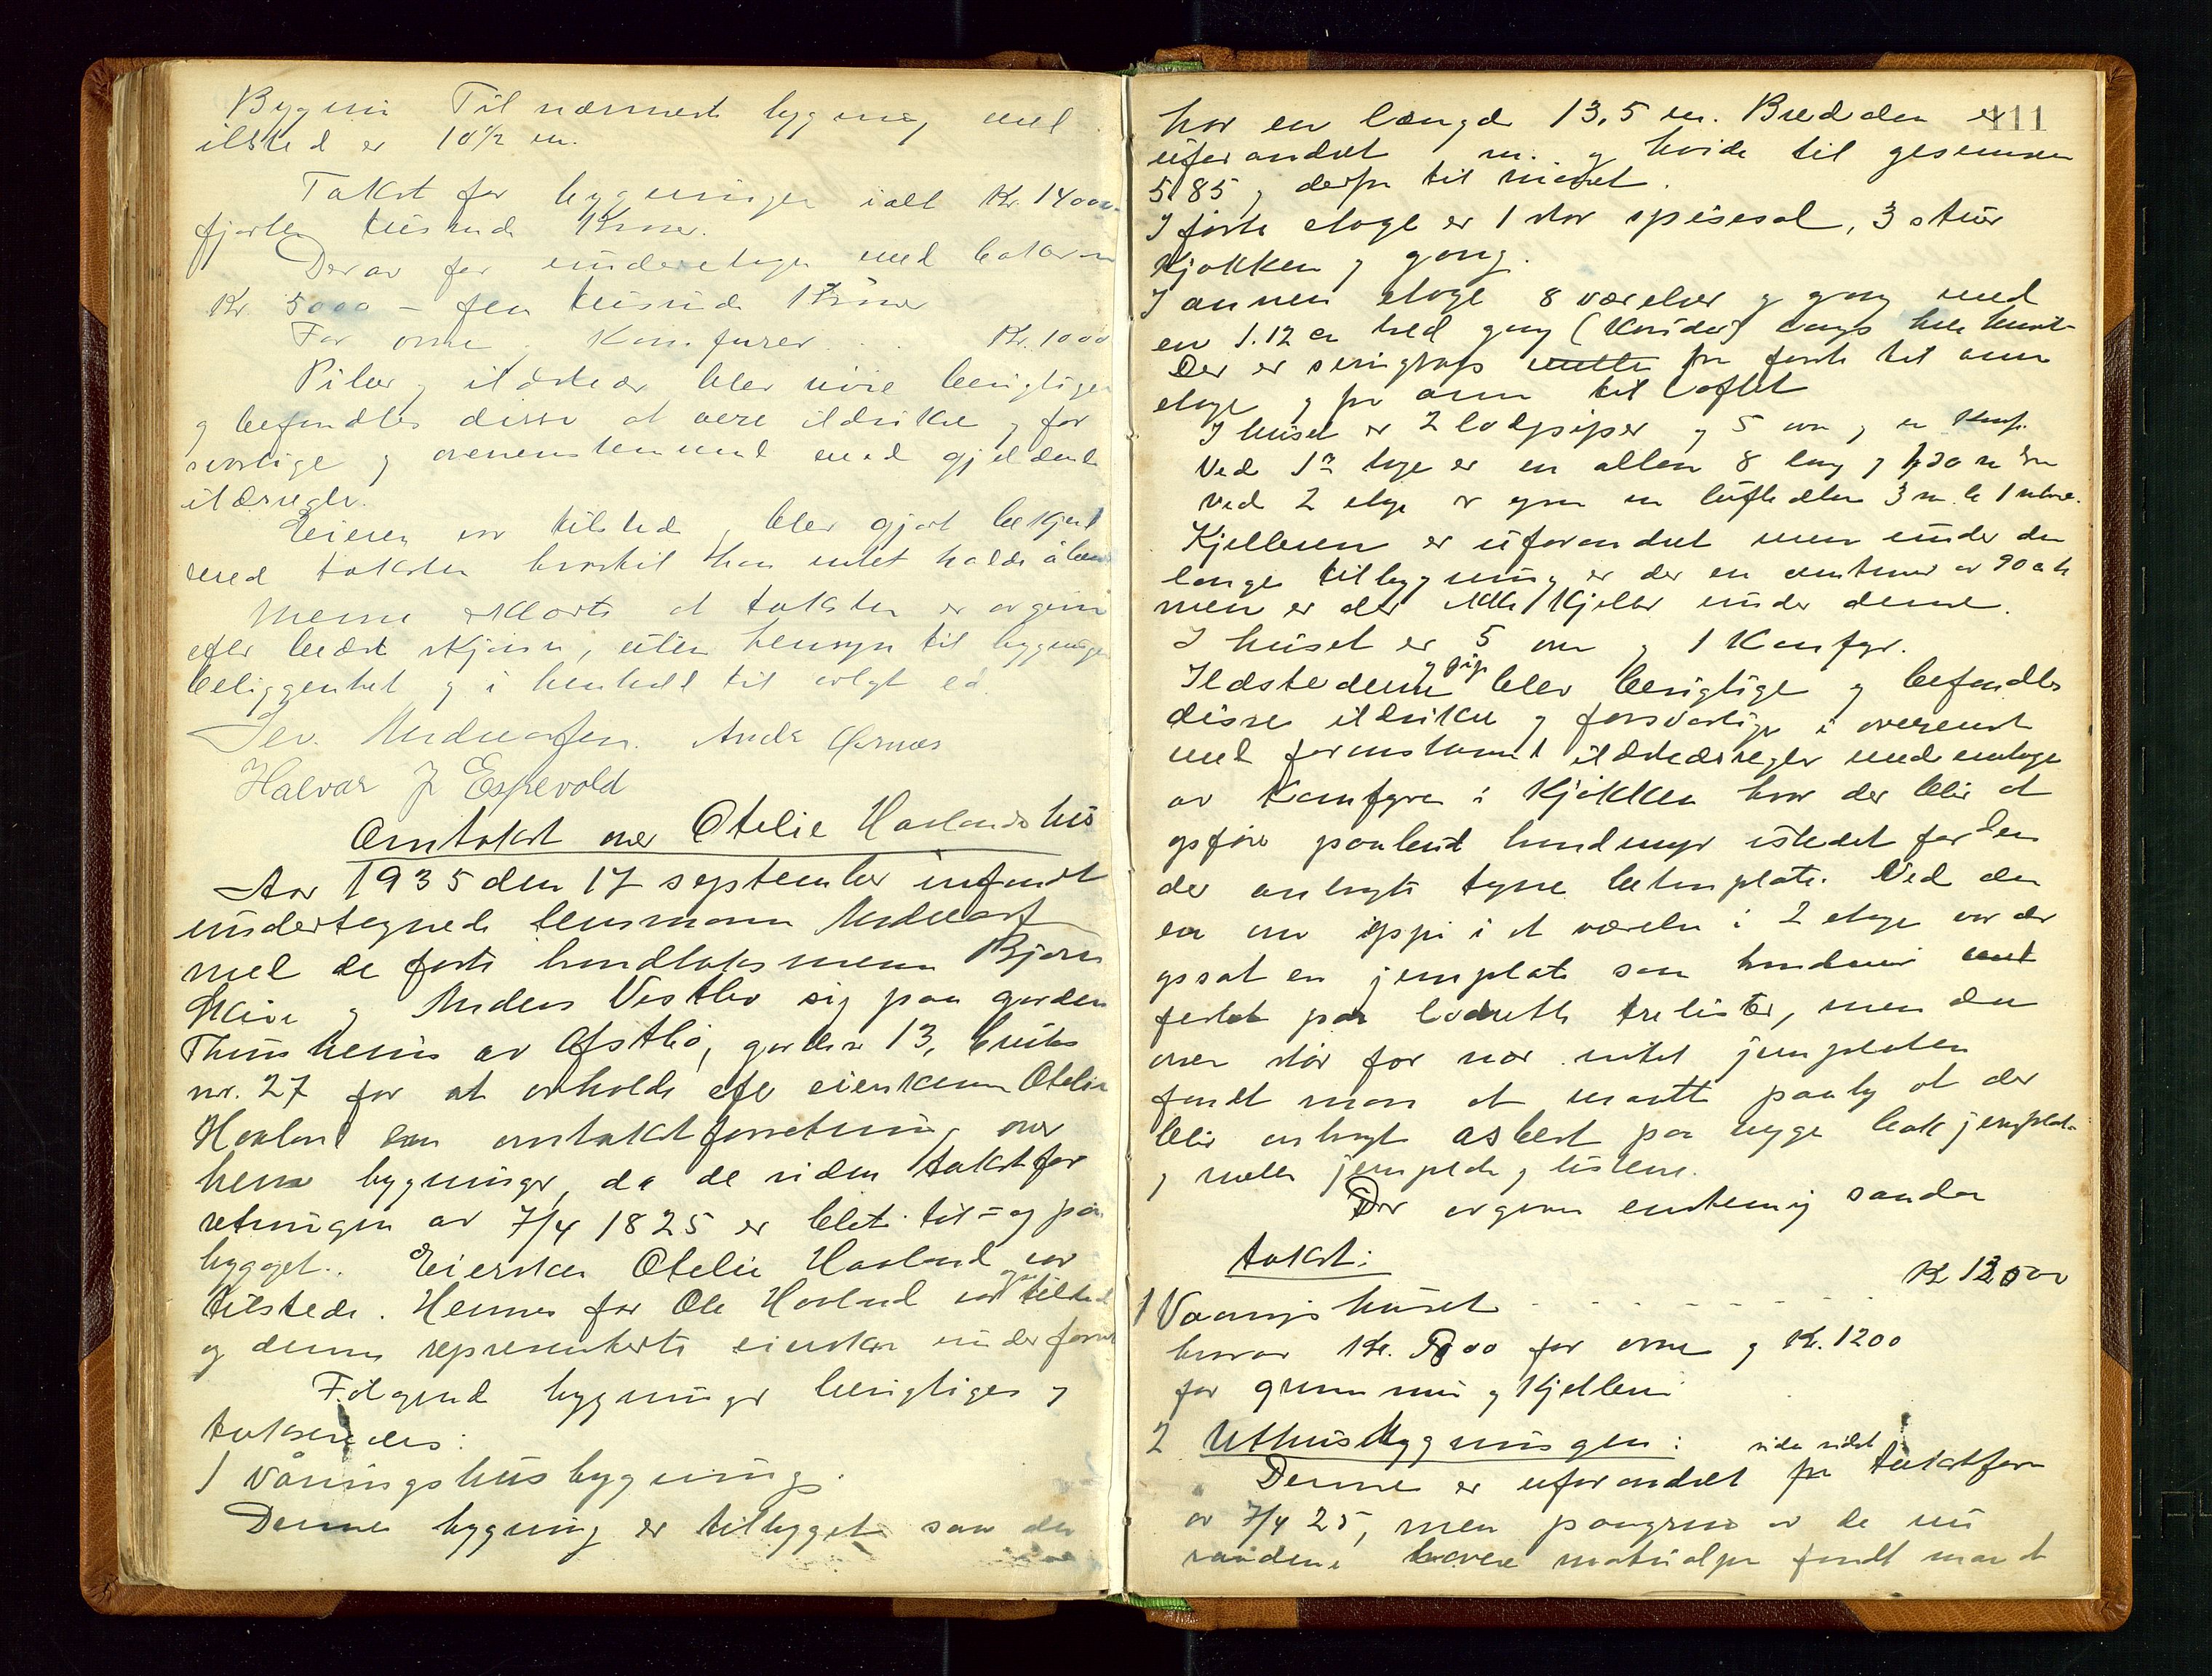 Bygni Til nærmest bygning med
ildsted er 10½ m.
Takst for bygningen ialt Kr. 14000
fjorten tusende Kroner.
Derav for underetagen med
Kr. 5000 – fem tusinde Kroner
For ovne, Komfurer . . Kr. 1000
Piber og ildsteder blev nøie besigtiget
og befundtes disse at være ildsikre og for
svarlige og overensstemmende med gjeldende
ildsregler.
Eieren var tilstede, blev gjort bekjent
med taksten hvortil han intet hadde å bem
Menne erklærte at taksten er avgivn
efter bedste skjønn, uten hensyn til bygnings
beliggenhet og i henhold til avlagt ed.
Halvar J Espevold
Omtakst over Otelie Havlands hus
Aar 1935 den 17 september infandt
undertegnede lensmann
med de faste hendtaksmenn Bjørn
og Anders Vestbø sig paa garden
av Østbø, gardsn 13, bruks
nr. 27 for at avholde efter eierskens Otelie
Havland omtakstforretning over
hennes bygninger, da de siden takstfor
retningen av 7/4 1825 er blet til- og på
bygget. Eiersken Otelie Havland var
tilstede. Hennes far Ole Havland var tilsted
og denne representerte eiersken under forr
Følgende bygninger besigtiges og
takseredes:
1 våningshusbygning.
Denne bygning er tilbygget saa den
111
har en længde 13,5 m. Bredden er
uforandret m. og høide til gesemsen
5.85, derfra til mønet.
I første etage er 1 stor spisesal, 3 stuer
Kjøkken og gang.
I annen etage 8 værelser og gang med
en 1.12 m bred gang (Koridor) langs hele huset
Der er svingtrapp fra første til annen
etage og fra annen til loftet
I huset er 2 lodpiper og 5 ovn og en Komf.
Ved 1ste etage er en altan 8 lang og 1,20 m bre
Ved 2 etage er ogsa en luftaltan 3 m. l. 1 m bre.
Kjelleren er uforandret men under den
lange tilbygning er der en av 90 cm
men er der ikke Kjeller under denne.
I huset er 5 ovn og 1 Komfyr.
Ildstederne og pip blev besigtige og befandtes
disse ildsikre og forsvarlige i overenst
med ildstedsregler med untage
av Komfyren i Kjøkken hvor der blir at
opføre paabud brandmur istedet for den
der anbragte tynne betonplate. Ved den
ene ovn oppe i et værelse i 2 etage var der
opsat en jernplate som brandmur
festet på lodrette trelister, men den
ovn står for nær intil jernplaten
fandt man at maatte paaby at der
blir anbragt asbest paa vegge bak jernplate
og mellem jernplate og listene.
Der avgives enstemmig saadan
takst:
1 Vaaningshuset . . - - - - - Kr 12500
hvorav Kr. 500 for ovne og Kr. 1200
for grunnmur og Kjelleren
2 Uthusbygningen:
Denne er uforandret siden sidst fra takstforr
av 7/4 25, men paagrund av de nu
raadende lavere matrialpr fandt man at